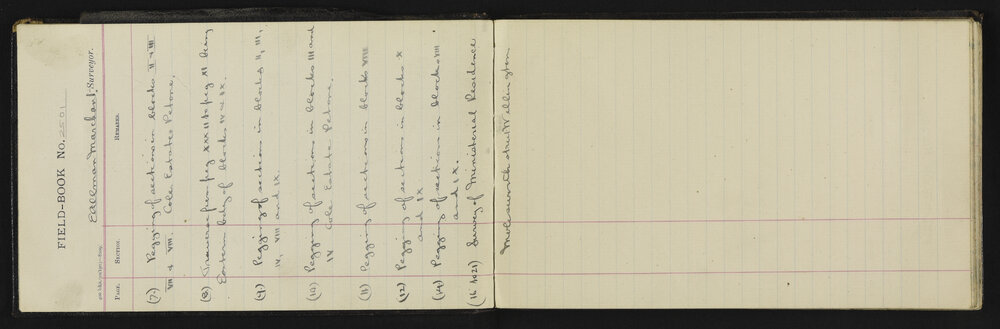 FIELD-BOOK No. 2501
E. Allman Marchant, Surveyor.
PAGE. SECTION. REMARKS.
(7) Pegging of sections in blocks II & III
VII & VIII. Cole Estates Petone.
(8) Traverse from peg XXXII to peg XI being
Eastern bdy of blocks IV & IX.
(9) Pegging of sections in blocks II, III,
IV, VIII and IX.
(10) Pegging of sections in blocks III and
IX Cole Estate Petone.
(11) Pegging of sections in blocks VIII
(12) Pegging of sections in blocks X
and IX
(14) Pegging of sections in blocks VIII.
and IX.
(16 to 21) Survey of Ministerial Residence
Molesworth street Wellington